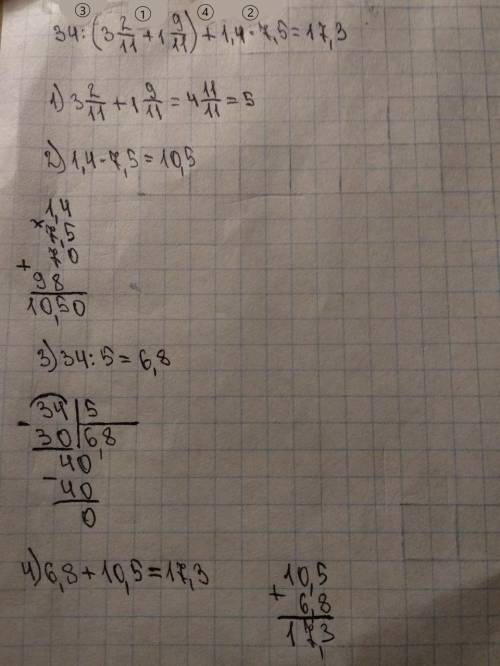 ③ ① ④ ②
34:(3 2/11 + 1 9/11) + 1,4 · 7,5 = 17,3
1) 3 2/11 + 1 9/11 = 4 11/11 = 5
2) 1,4 · 7,5 = 10,5
1,4
× 7,5
70
+ 98
10,50
3) 34:5 = 6,8
- 34 | 5
30 | 6,8
40
- 40
0
4) 6,8 + 10,5 = 17,3
10,5
+ 6,8
17,3